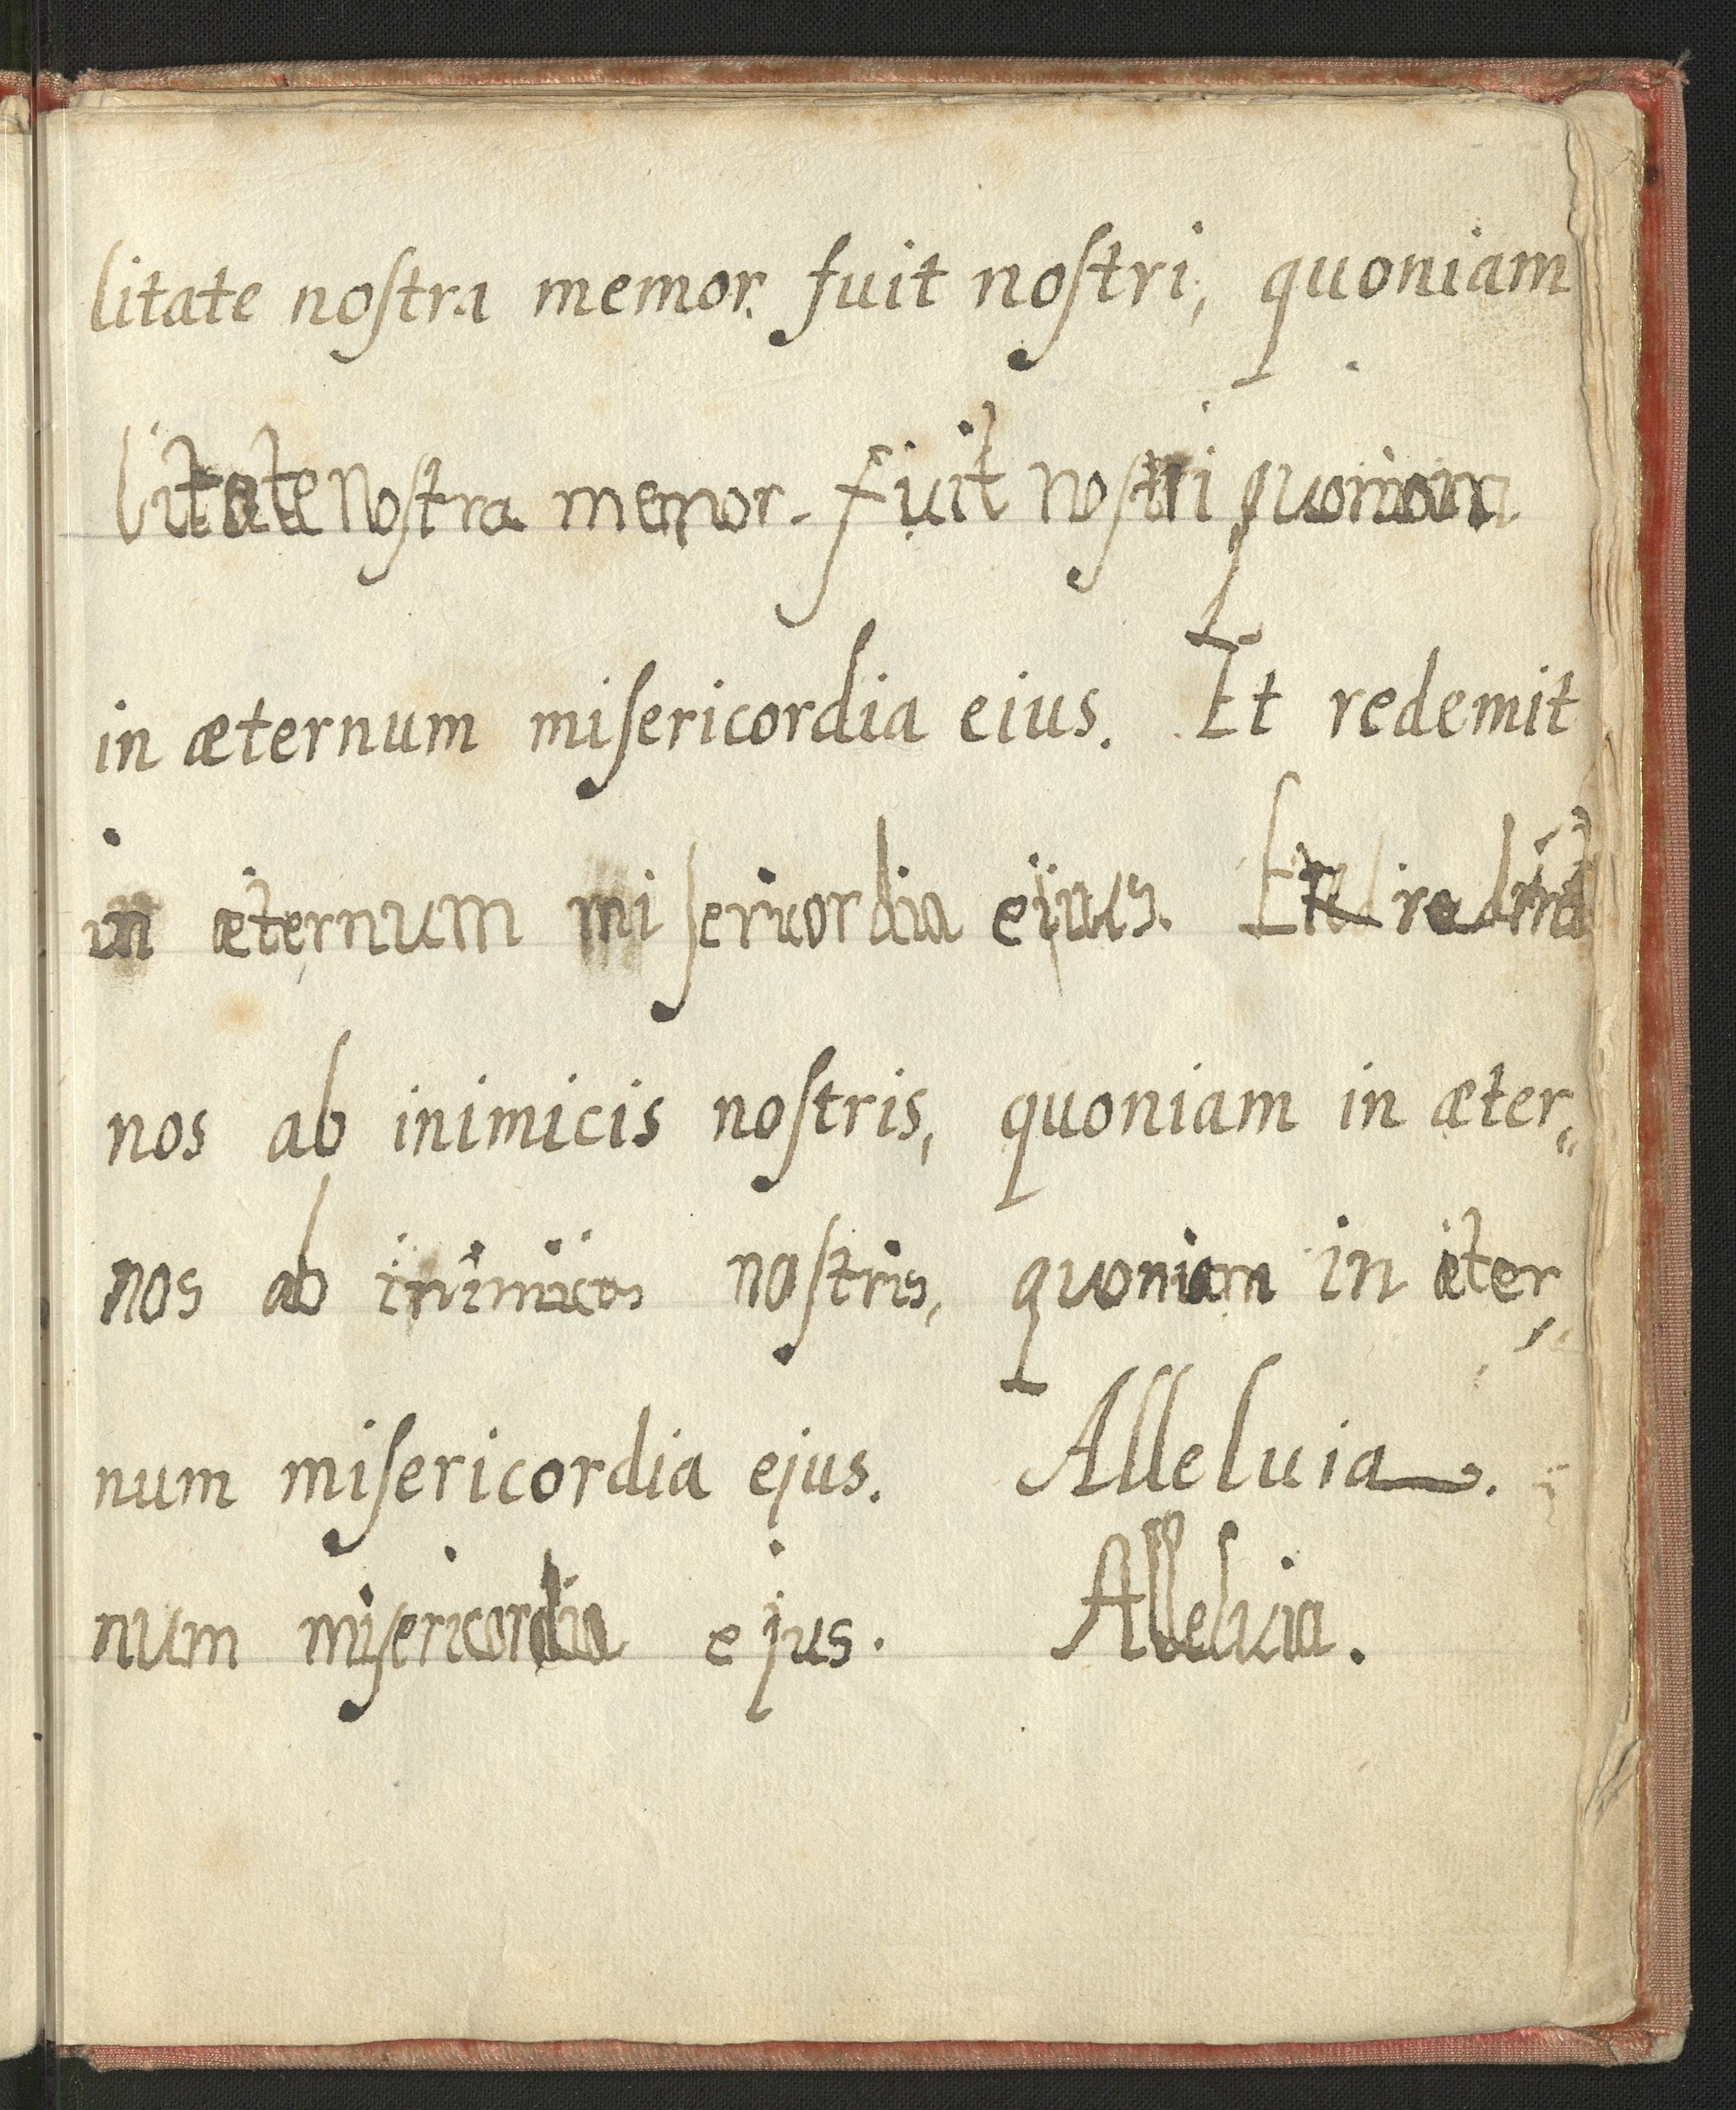 litate noſtra memor. fuit noſtri, quoniam
litate noſtra memor. fuit noſtri quoniam
in æternum miſericordia eius. Et redemit
in æternum miſericordia eijus. Et
nos ab inimicis noſtris, quoniam in æter„
nos ab inimicos noſtris, quoniam in æter„
num miſericordia ejus. Alleluia.
num miſericordia ejus. Alleluia.